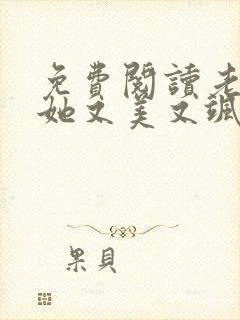 免費閱讀老
她又美又颯
果貝